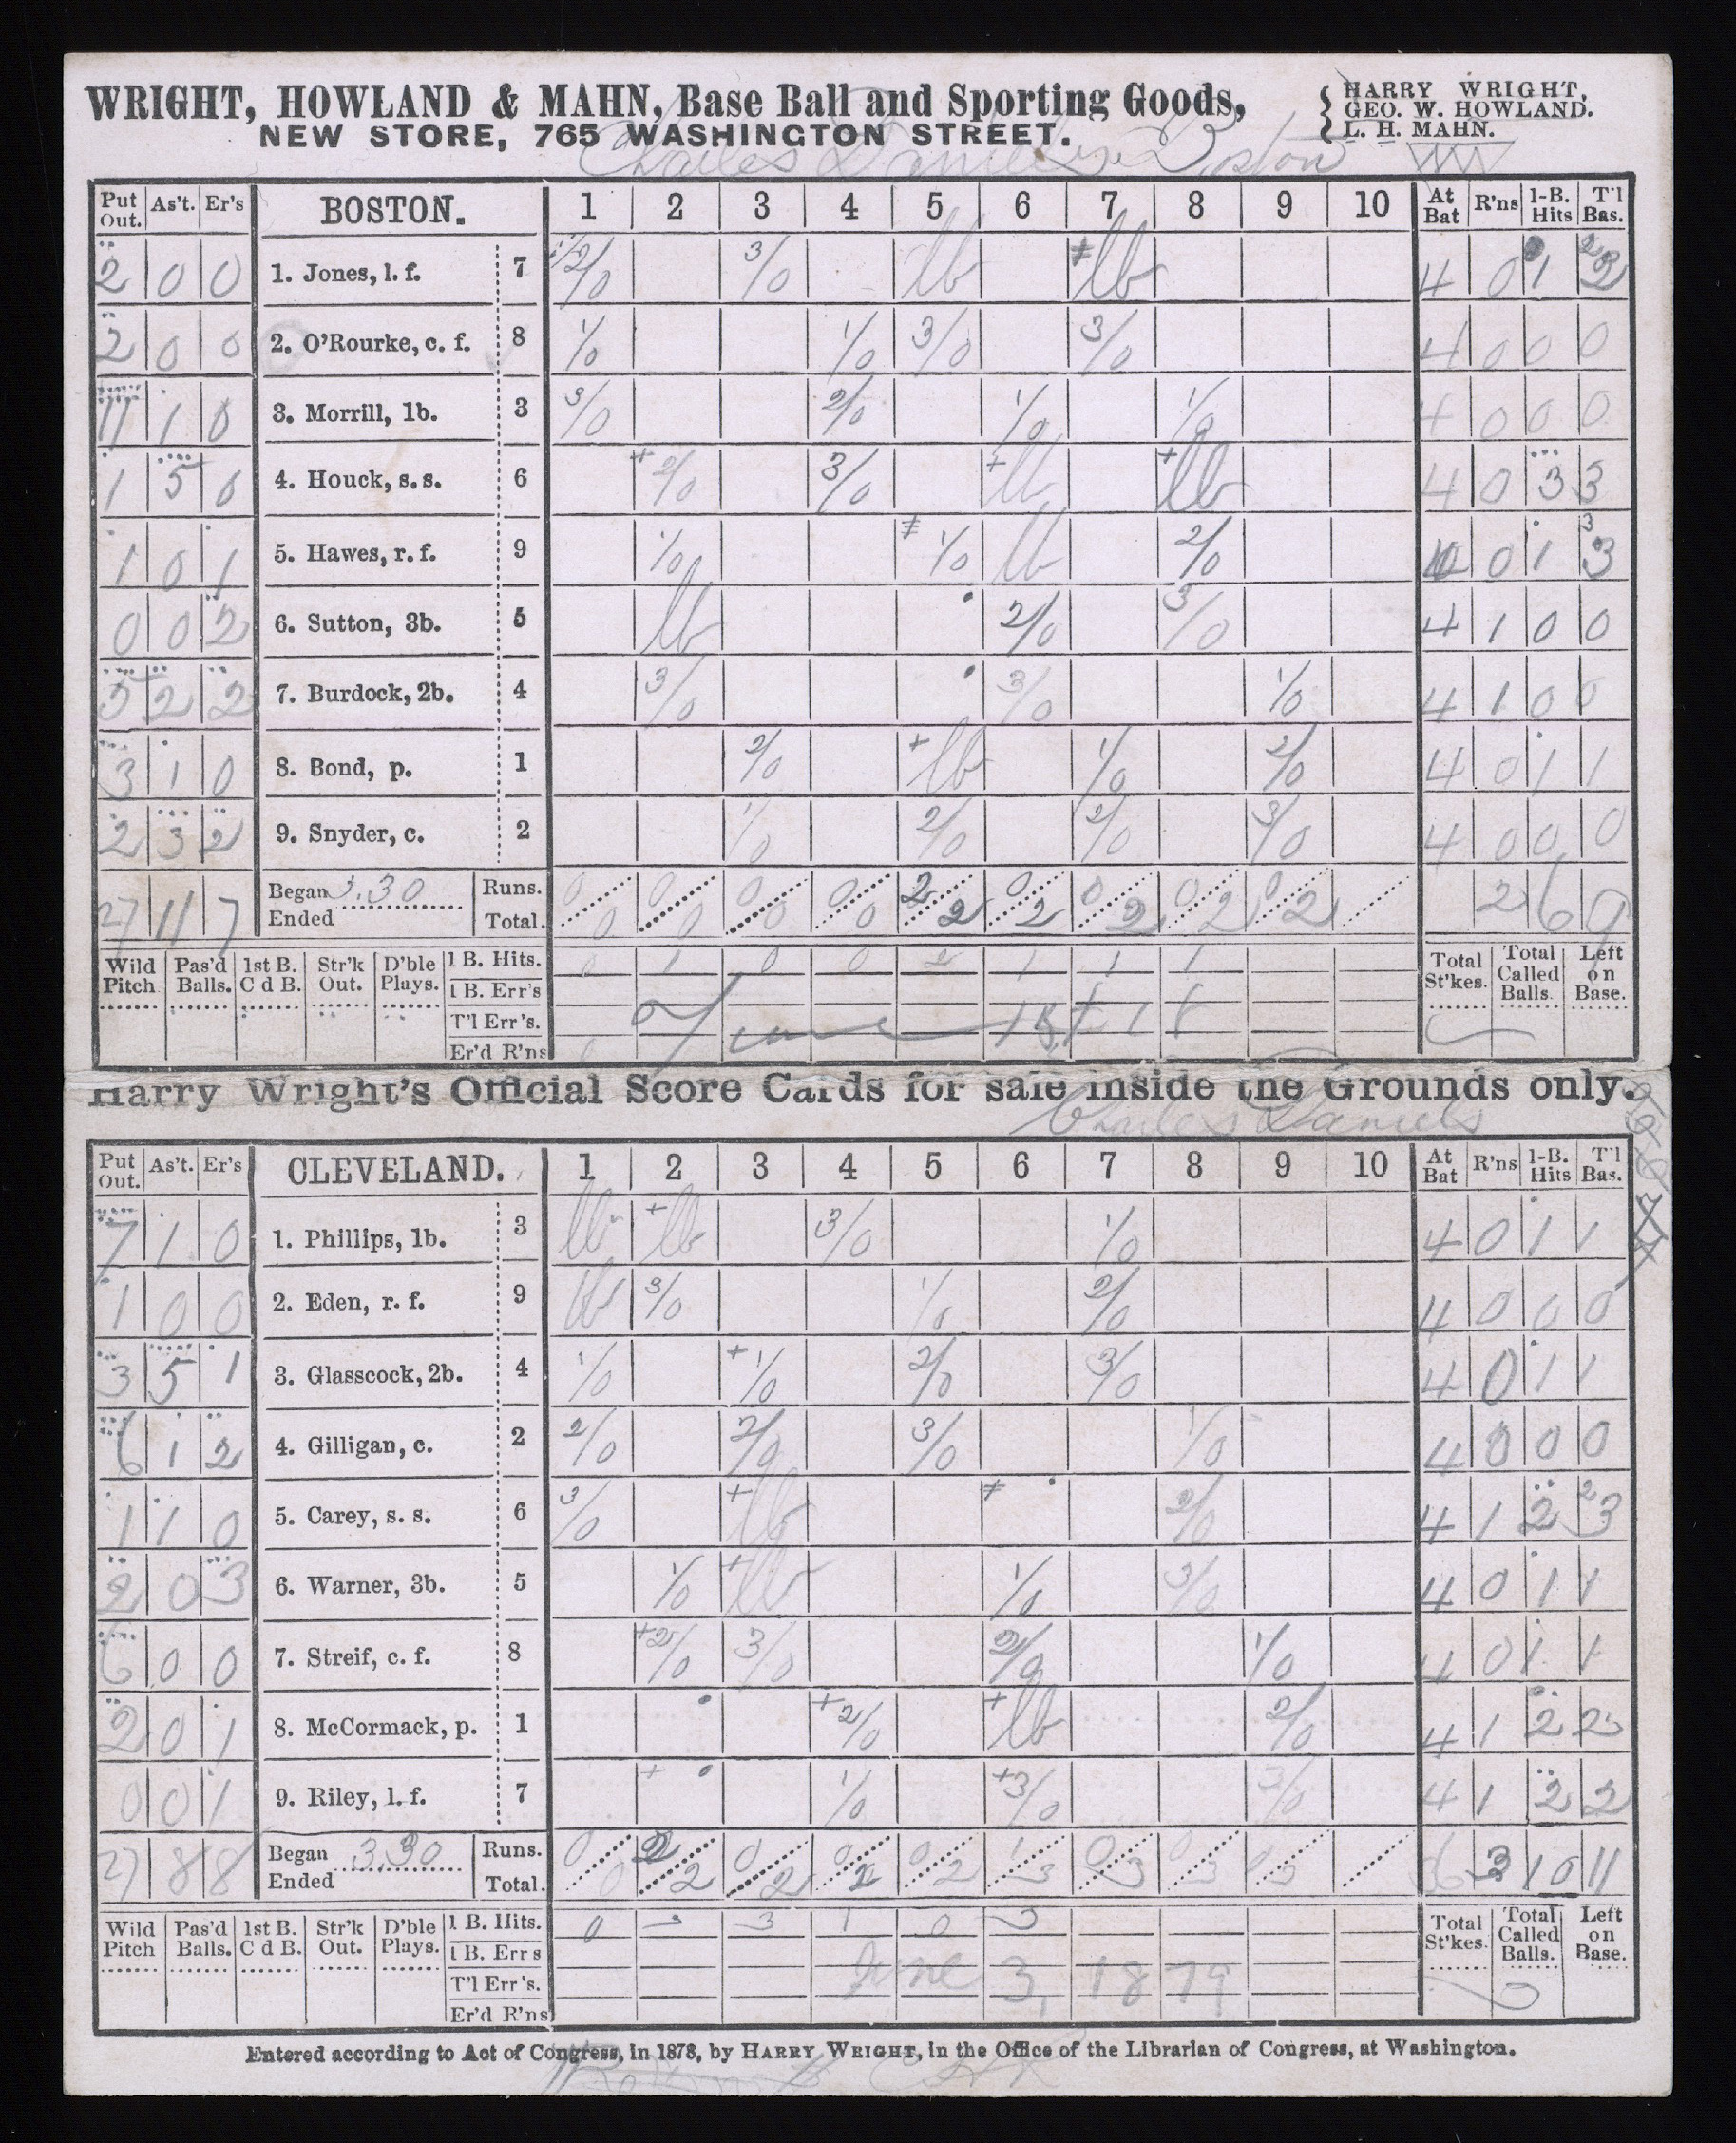 WRIGHT, HOWLAND & MAHN, Base Ball and Sporting Goods, { HARRY WRIGHT, GEO. W. HOWLAND. L. H. MAHN.
NEW STORE, 765 WASHINGTON STREET.
Charles Daniels Boston
Put Out. As't. Er's BOSTON. 1 2 3 4 5 6 7 8 9 10 At Bat R'ns 1-B. Hits T'l Bas.
2 0 0 1. Jones, l. f. 7 2/0 3/0 lb lb 4 0 1 2
2 0 0 2. O'Rourke, c. f. 8 1/0 1/0 3/0 3/0 4 0 0 0
11 1 0 3. Morrill, 1b. 3 3/0 2/0 1/0 1/0 4 0 0 0
1 5 0 4. Houck, s. s. 6 + 2/0 3/0 + lb + lb 4 0 3 3
1 0 1 5. Hawes, r. f. 9 1/0 1/0 lb 2/0 0 1 3
0 0 2 6. Sutton, 3b. 5 lb 2/0 3/0 4 1 0 0
5 2 2 7. Burdock, 2b. 4 3/0 3/0 1/0 4 1 0 0
3 1 0 8. Bond, p. 1 2/0 + lb 1/0 2/0 4 0 1 1
2 3 2 9. Snyder, c. 2 1/0 2/0 2/0 3/0 4 0 0 0
27 11 7 Began 3.30 Runs. 0 0 0 0 2 0 0 0 0 2 6 9
Ended Total. 0 0 0 0 2 2 2 2 2
Wild Pitch Pas'd Balls. 1st B. C d B. Str'k Out. D'ble Plays. 1 B. Hits. 0 1 0 0 2 1 1 1 Total St'kes. Total Called Balls. Left on Base.
1 B. Err's
T'l Err's.
Er'd R'ns
Harry Wright's Official Score Cards for sale inside the Grounds only.
Charles Daniels
Put Out. As't. Er's CLEVELAND. 1 2 3 4 5 6 7 8 9 10 At Bat R'ns 1-B. Hits T'l Bas.
7 1 0 1. Phillips, 1b. 3 lb + lb 3/0 1/0 4 0 1 1
1 0 0 2. Eden, r. f. 9 lb 3/0 1/0 2/0 4 0 0 0
3 5 1 3. Glasscock, 2b. 4 1/0 + 1/0 2/0 3/0 4 0 1 1
6 1 2 4. Gilligan, c. 2 2/0 2/0 3/0 1/0 4 0 0 0
1 1 0 5. Carey, s. s. 6 3/0 + lb 2/0 4 1 2 3
2 0 3 6. Warner, 3b. 5 1/0 + lb 1/0 3/0 4 0 1 1
6 0 0 7. Streif, c. f. 8 + 2/0 3/0 2/0 1/0 4 0 1 1
2 0 1 8. McCormack, p. 1 + 2/0 + lb 2/0 4 1 2 2
0 0 1 9. Riley, l. f. 7 + 1/0 + 3/0 3/0 4 1 2 2
27 8 8 Began 3.30 Runs. 0 2 0 0 0 1 0 0 0 36 3 10 11
Ended Total. 0 2 2 2 2 3 3 3 3
Wild Pitch Pas'd Balls. 1st B. C d B. Str'k Out. D'ble Plays. 1 B. Hits. 0 3 3 1 0 3 Total St'kes. Total Called Balls. Left on Base.
1 B. Err s
T'l Err's. June 3, 1879
Er'd R'ns
Entered according to Act of Congress, in 1878, by HARRY WRIGHT, in the Office of the Librarian of Congress, at Washington.